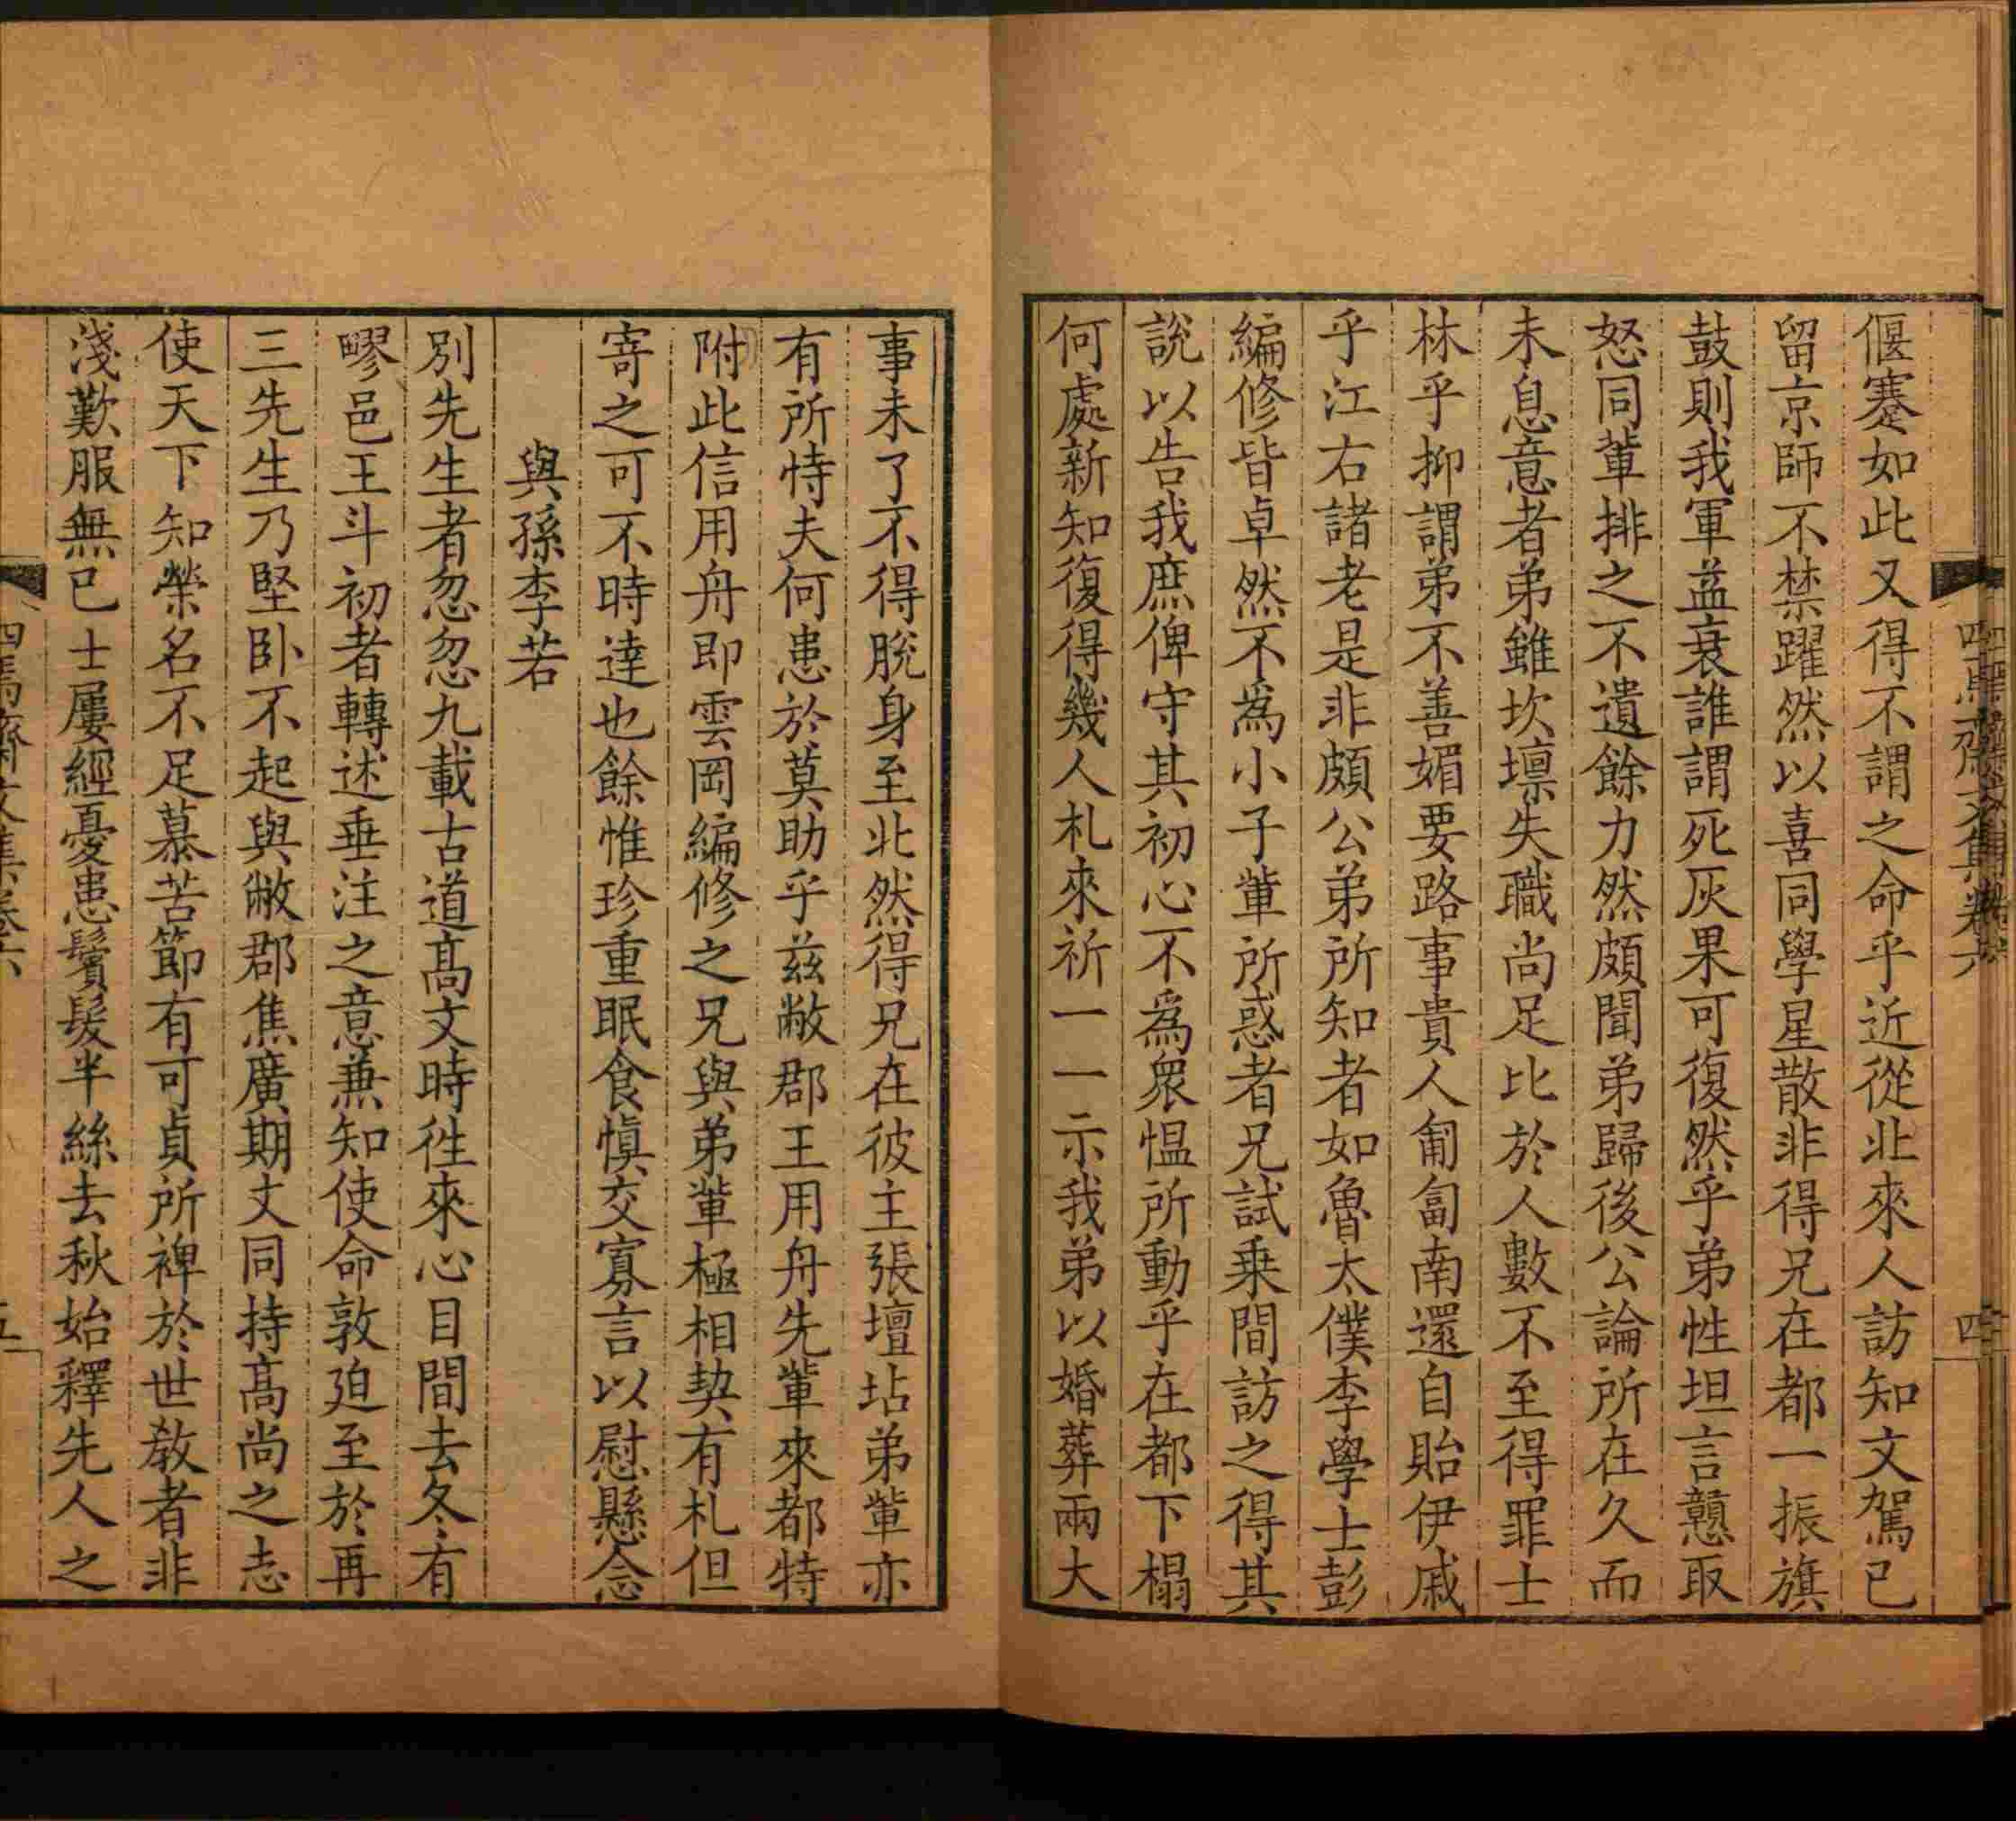 偃蹇如此又得不謂之命乎近從北來人訪知文駕已
留京師不禁躍然以喜同學星散非得兄在都一振旗
鼓則我軍益衰誰謂死灰果可復然乎弟性坦言戇取
怒同輩排之不遺餘力然頗聞弟歸後公論所在久而
未息意者弟雖坎壈失職尚足比於人數不至得罪士
林乎抑謂弟不善媚要路事貴人匍匐南還自貽伊戚
乎江右諸老是非頗公弟所知者如魯太僕李學士彭
編修皆卓然不為小子輩所惑者兄試乗間訪之得其
說以告我庶俾守其初心不為眾愠所動乎在都下榻
何處新知復得幾人札來祈一一示我弟以婚葬兩大
四焉齋文集卷六
四
事未了不得脫身至北然得兄在彼主張壇坫弟輩亦
有所恃夫何患於莫助乎兹敝郡王用舟先輩來都特
附此信用舟即雲岡編修之兄與弟輩極相契有札但
寄之可不時達也餘惟珍重眠食慎交寡言以慰懸念
與孫李若
別先生者忽忽九載古道高文時徃來心目間去冬有
疁邑王斗初者轉述垂注之意兼知使命敦迫至於再
三先生乃堅卧不起與敝郡焦廣期丈同持高尚之志
使天下知榮名不足慕苦節有可貞所裨於世教者非
淺歎服無已士屢經憂患鬢髮半絲去秋始釋先人之
四焉齋文集卷六
五